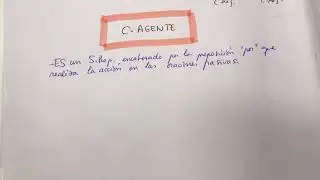 C. AGENTE
- ES un S. Prep. encabezado por la preposición "por" que
realiza la acción en las oraciones pasivas.